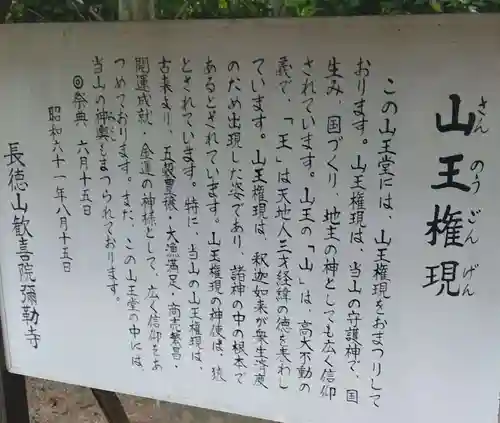 山王権現
さんのうごんげん
この山王堂には、山王権現をおまつりして
おります。山王権現は、当山の守護神で、国
生み、国づくり、地主の神としても広く信仰
されています。山王の「山」は、高大不動の
義で、「王」は天地人三才経緯の徳を表わし
ています。山王権現は、釈迦如来が衆生済度
のため出現した姿であり、諸神の中の根本で
あるとされています。山王権現の神使は、猿
とされています。特に、当山の山王権現は、
古来より、五穀豊穣・大漁満足・商売繁昌・
開運成就・金運の神様として、広く信仰をあ
つめております。また、この山王堂の中には、
当山の神輿もまつられております。
◎祭典 六月十五日
昭和六十一年八月十五日
長徳山歓喜院彌勒寺